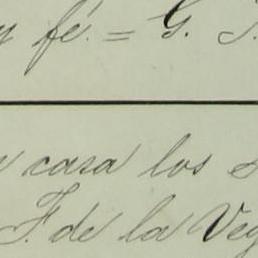 y fé. = G. J.
casa los
F. de la Veg